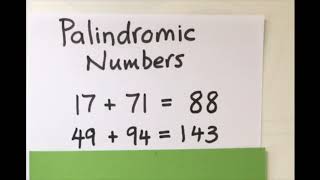 Palindromic
Numbers
17 + 71 = 88
49 + 94 = 143